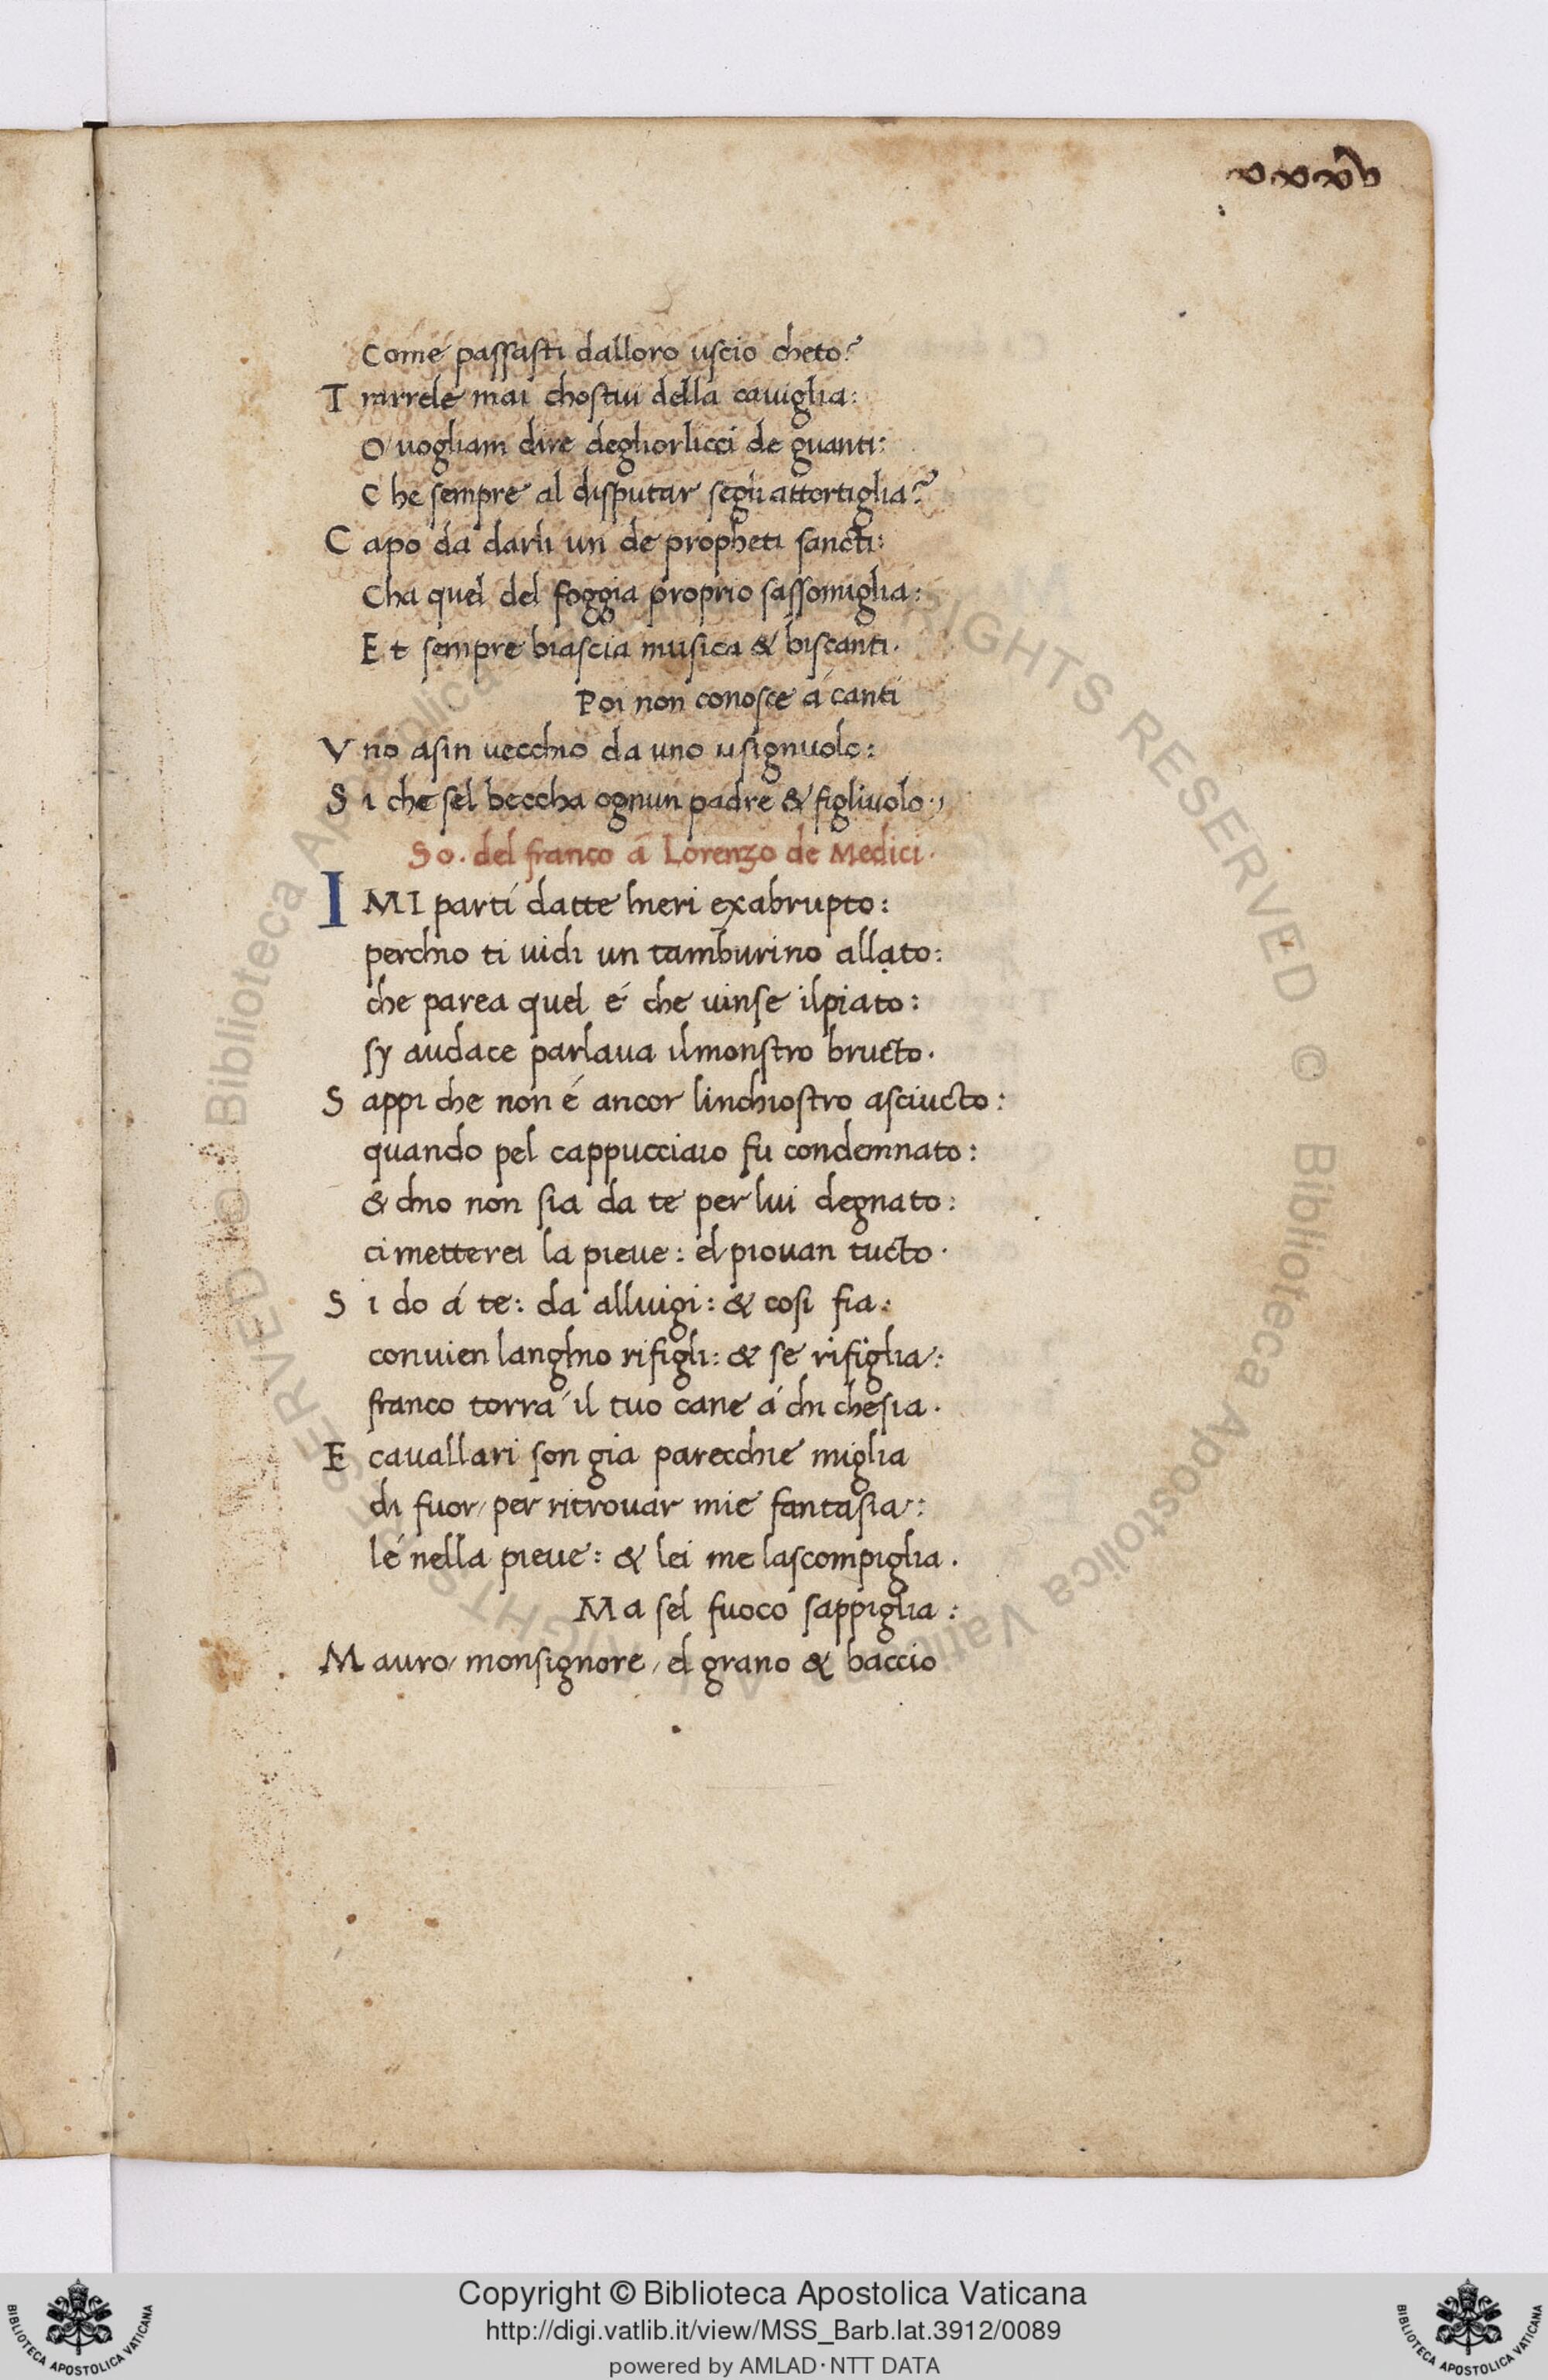 xxxv
Come passasti dalloro uscio cheto?
T mai chostui della cauiglia:
O uogliam dire deghorlicci de guanti:
Che sempre al disputar segli attortiglia?
Capo da darli un de propheti sancti:
Cha quel del foggia proprio sassomiglia:
Et sempre biascia musica & biscanti.
Poi non conosce á canti
Vno asin uecchio da uno usignuolo:
Si che sel beccha ognun padre & figliuolo.,
So. del franco á Lorenzo de Medici.
I MI partí datte hieri exabrupto:
perchio ti uidi un tamburino allato:
che parea quel é che uinse ilpiato:
sy audace parlaua ilmonstro bructo.
Sappi che non é ancor linchiostro asciucto:
quando pel cappucciaio fu condemnato:
& chio non sia da te per lui degnato:
ci metterei la pieue: el piouan tucto.
Si do á te: da alluigi: & cosi fia:
conuien langhio rifigli: & se rifiglia:
franco torrá il tuo cane á chi chesia.
E cauallari son gia parecchie miglia
di fuor, per ritrouar mie fantasia:
lé nella pieue: & lei me lascompiglia.
Ma sel fuoco sappiglia:
Mauro, monsignore, el grano & baccio
© Biblioteca Apostolica Vaticana ALL RIGHTS RESERVED © Biblioteca Apostolica Vaticana ALL RIGHTS RESERVED
BIBLIOTECA APOSTOLICA VATICANA
Copyright © Biblioteca Apostolica Vaticana
http://digi.vatlib.it/view/MSS_Barb.lat.3912/0089
powered by AMLAD·NTT DATA
BIBLIOTECA APOSTOLICA VATICANA